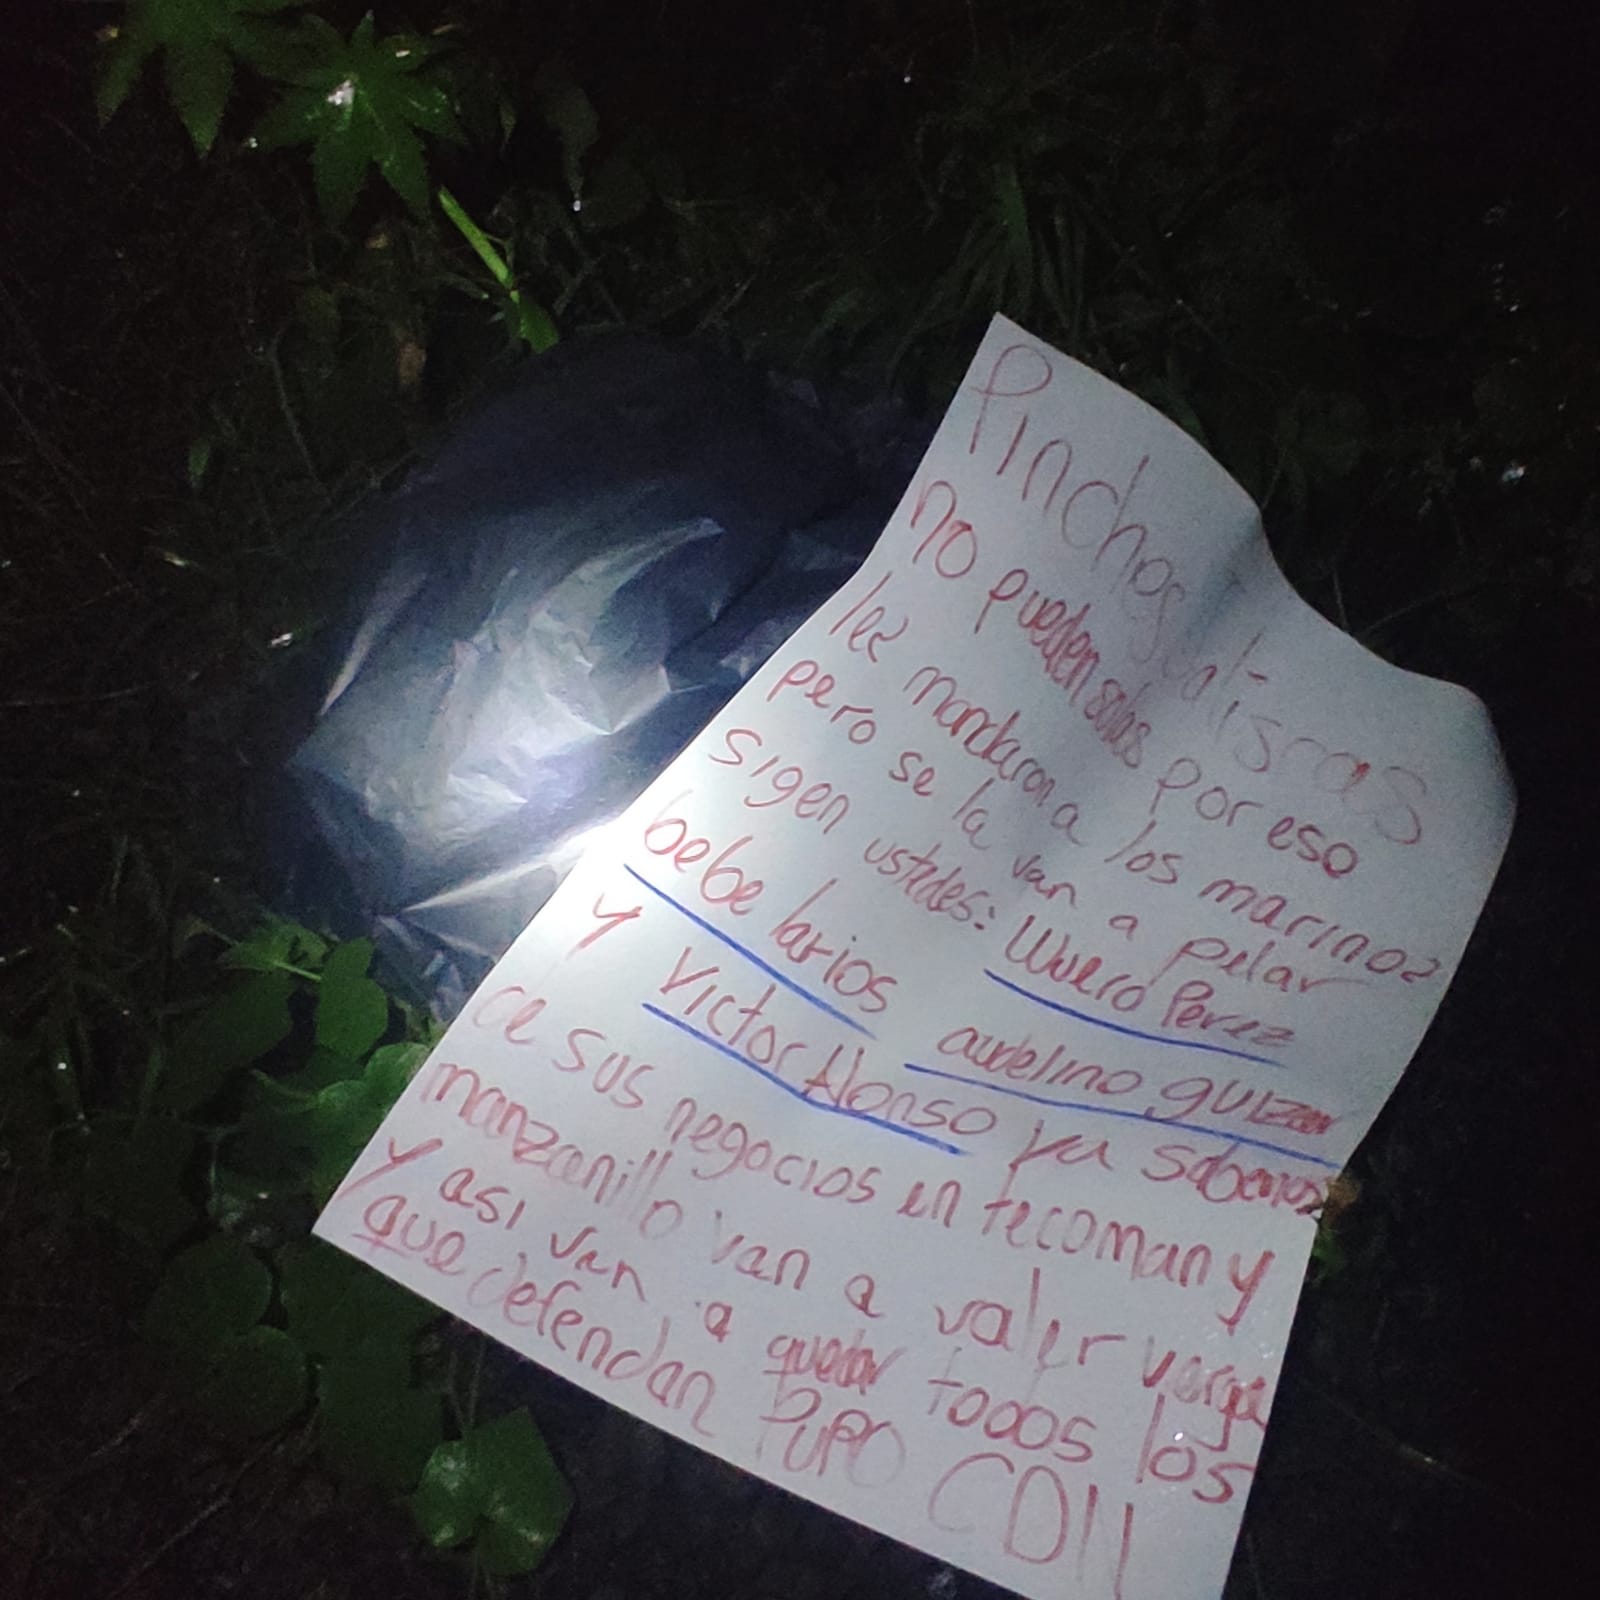 Pinchos jalisras
no pueden solos por eso
lez mandaron a los marinoz
pero se la van a pelar
sigen ustedes: Wuero Perez
bebe larios audelino guizar
y Victor Alonso ya sabemos
de sus negocios en tecoman y
manzanillo van a valer verga
y asi van a quedar todos los
que defendan PuPo CDN